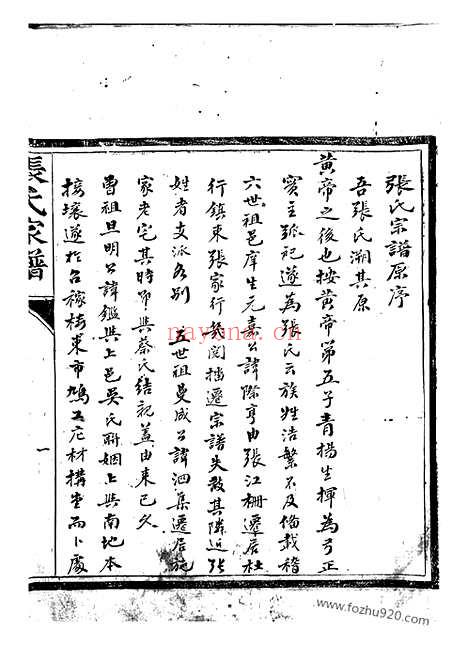 張氏宗譜原序
吾張氏溯其原
黃帝之後也按黃帝第五子青陽生揮為弓正
實主弧祀遂為張氏云族姓浩繁不及備載稽
六世祖邑庠生元素公諱際亨由張江柵遷居杜
行鎮東張家行幾閱播遷宗譜失散其隣近張
姓者支派各別 五世祖曼成公諱泗集遷居施
家老宅其時即與蔡氏結親蓋由來已久
曾祖旦明公諱鑑與上邑吳氏聯姻上與南地本
接壤遂於召稼樓東市鳩工庀材構堂而卜處
張氏家譜
一
nayona.cn
www.fozhu920.com